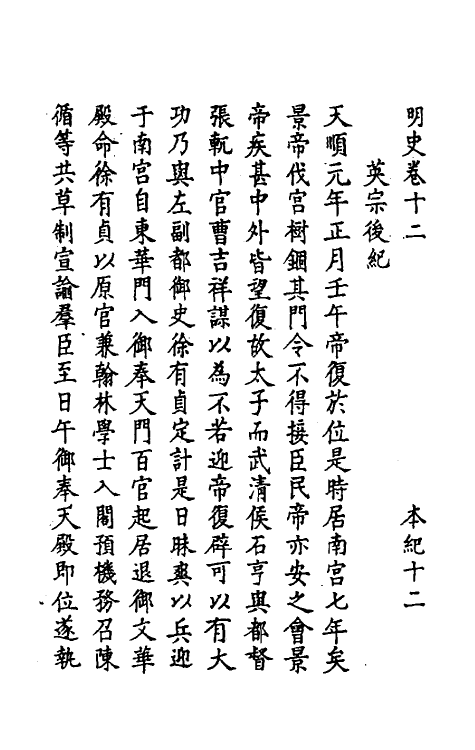 明史卷十二 本紀十二
英宗後紀
天順元年正月壬午帝復於位是時居南宮七年矣
景帝伐宮樹錮其門令不得接臣民帝亦安之會景
帝疾甚中外皆望復故太子而武清侯石亨與都督
張軏中官曹吉祥謀以為不若迎帝復辟可以有大
功乃與左副都御史徐有貞定計是日昧爽以兵迎
于南宮自東華門入御奉天門百官起居退御文華
殿命徐有貞以原官兼翰林學士入閣預機務召陳
循等共草制宣諭羣臣至日午御奉天殿即位遂執